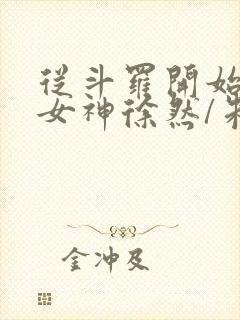 從斗羅開始
女神徐然/朱
金冲及